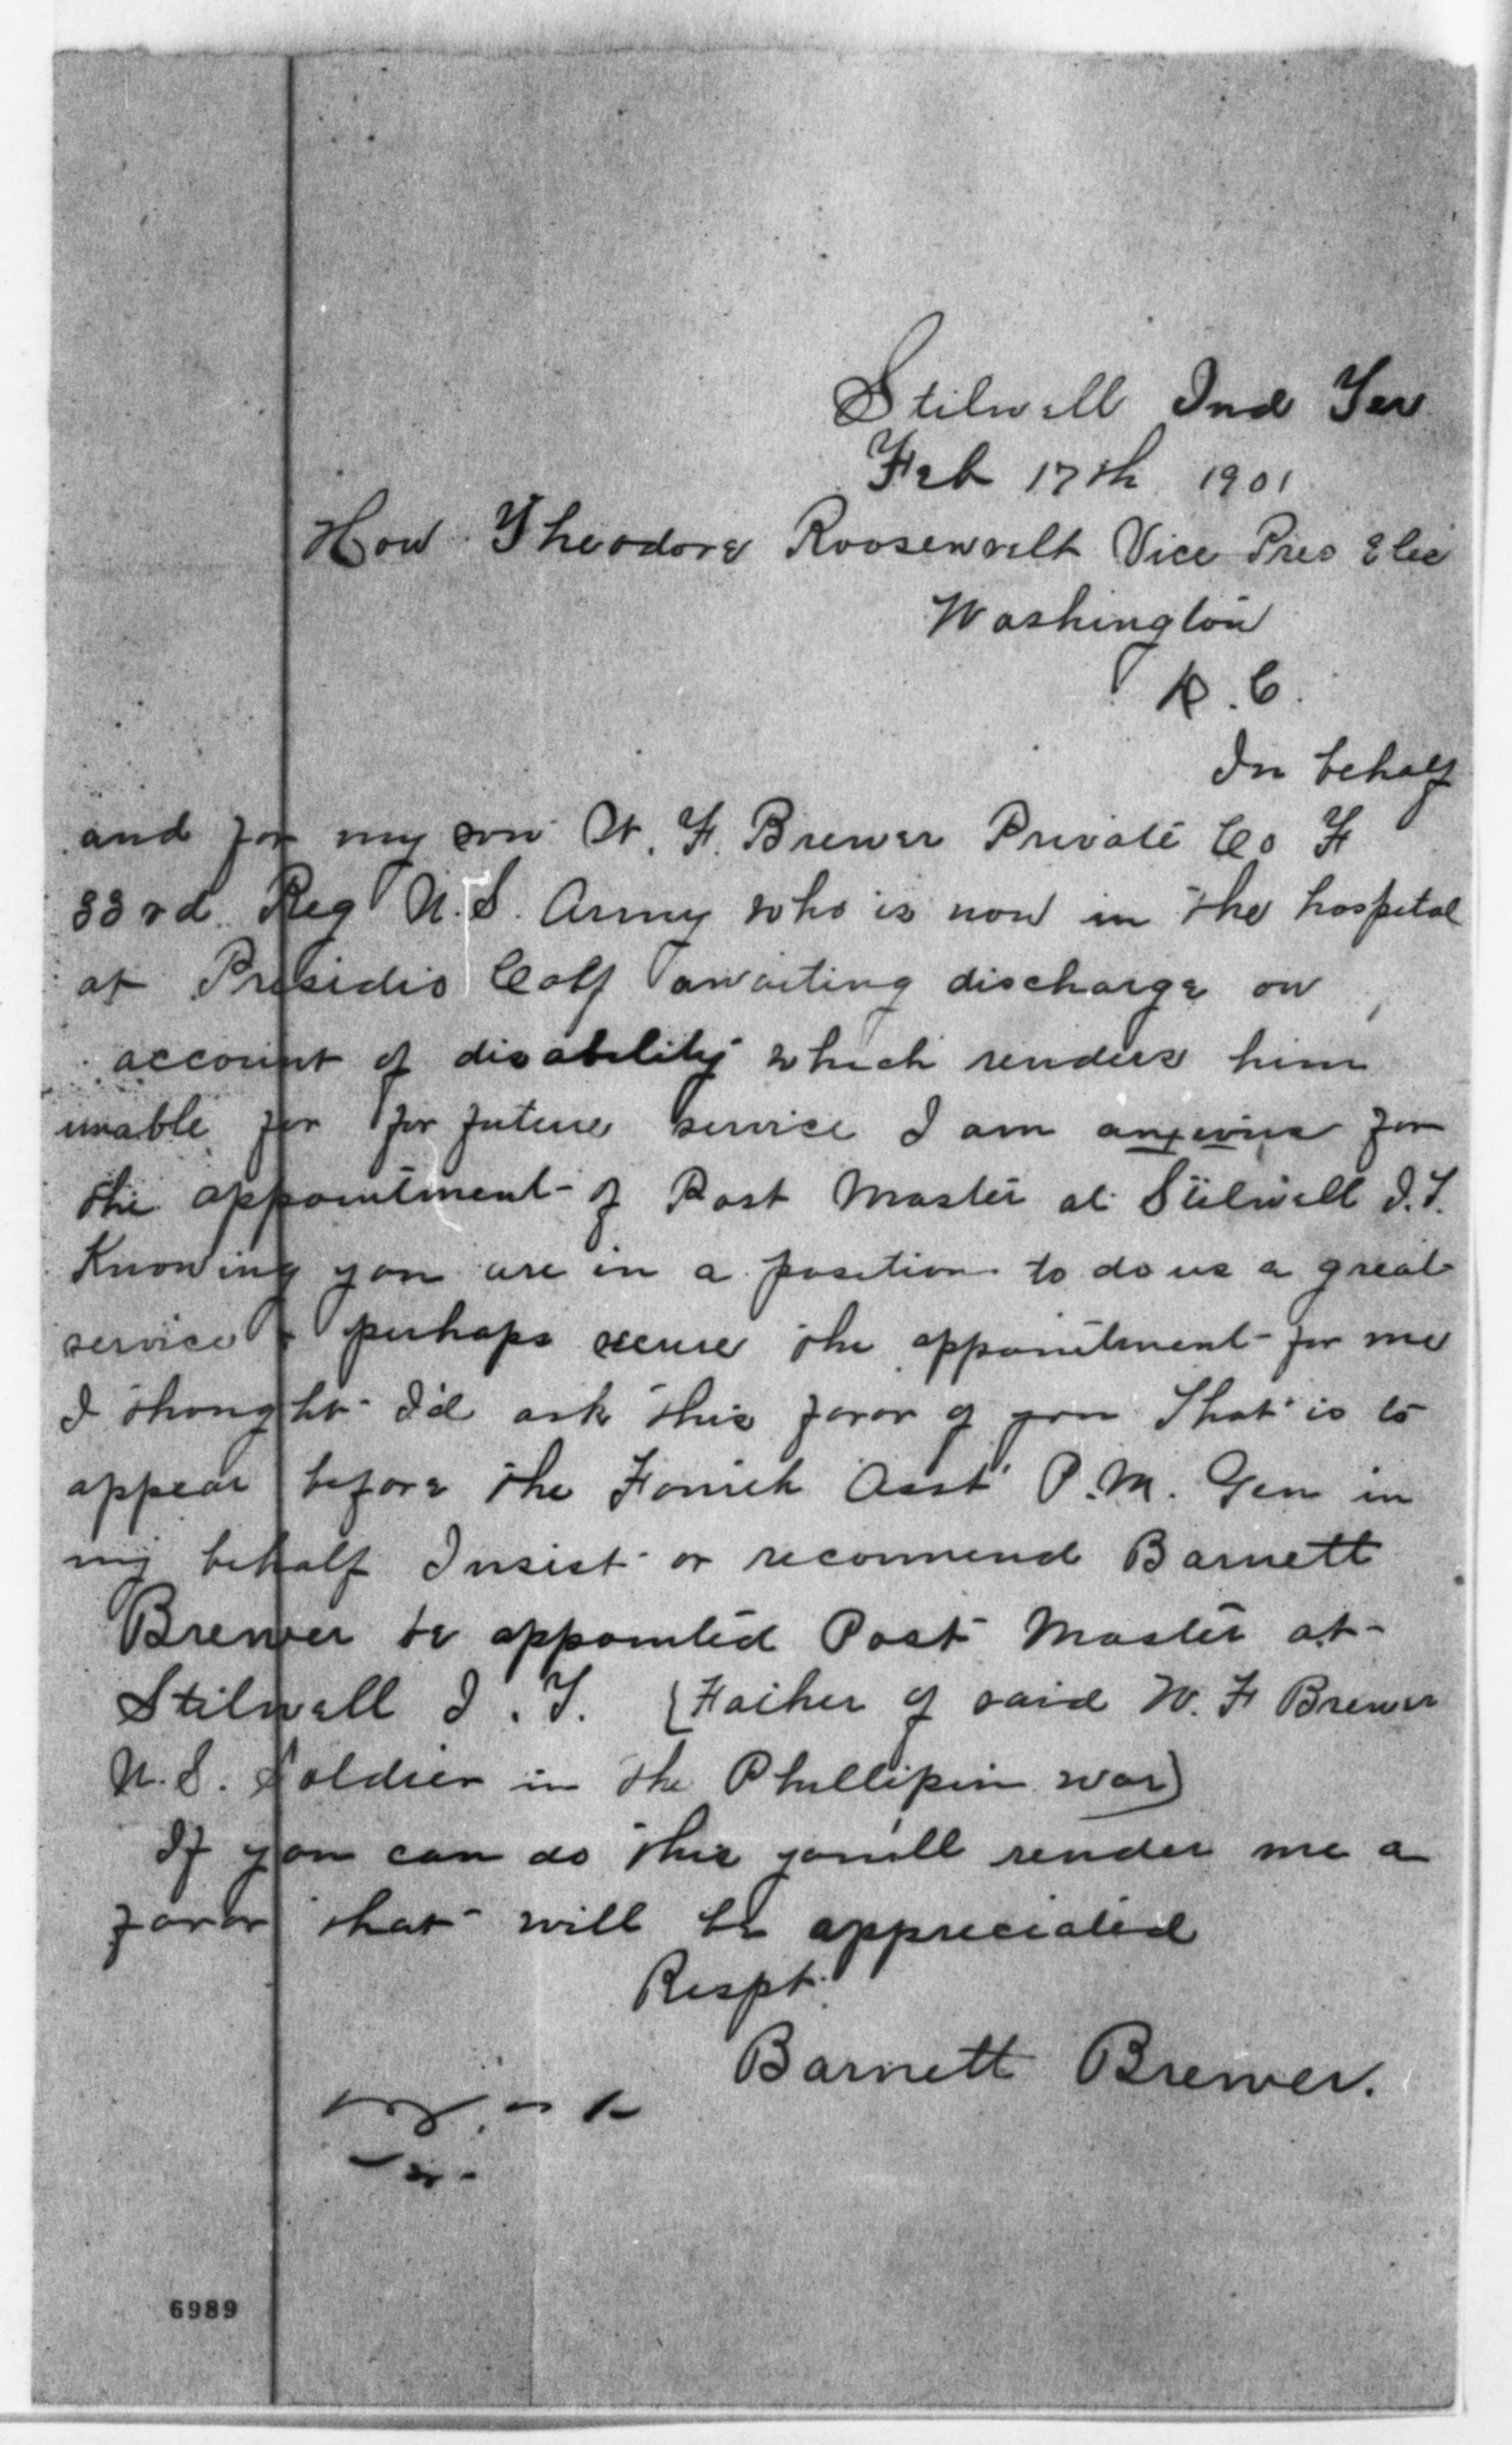 Stilwell Ind Ter
Feb 17th 1901
Hon Theodore Roosewelt Vice Pres Elec
Washington
D.C.
In behalf
and for my son W. F. Brewer Private Co F
33rd Reg U.S. Army who is now in the hospital
at Presidio Calf awaiting discharge on
account of disability which renders him
unable for for future service I am anxious for
the appointment of Post Master at Stilwell I.T.
Knowing you are in a position to do us a great
service & perhaps secure the appointment for me
I thought I'd ask this favor of you That is to
appear before the Fourth Asst P.M. Gen in
my behalf Insist or recommend Barnett
Brewer be appointed Post Master at
Stilwell I.T. (Father of said W. F Brewer
U.S. Soldier in the Phillipin war)
If you can do this you'll render me a
favor that will be appreciated
Respt.
Barnett Brewer.
6989